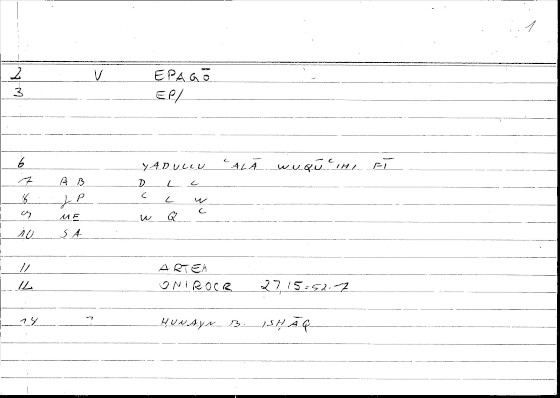 1
2 V EPAGŌ
3 EP/
6 YADULLU ʿALĀ WUQŪʿIHI FĪ
7 AB D L L
8 JP ʿ L W
9 ME W Q ʿ
10 SA
11 ARTEM
12 ONIROCR 27,15-52.7
14 " HUNAYN B. ISḤĀQ